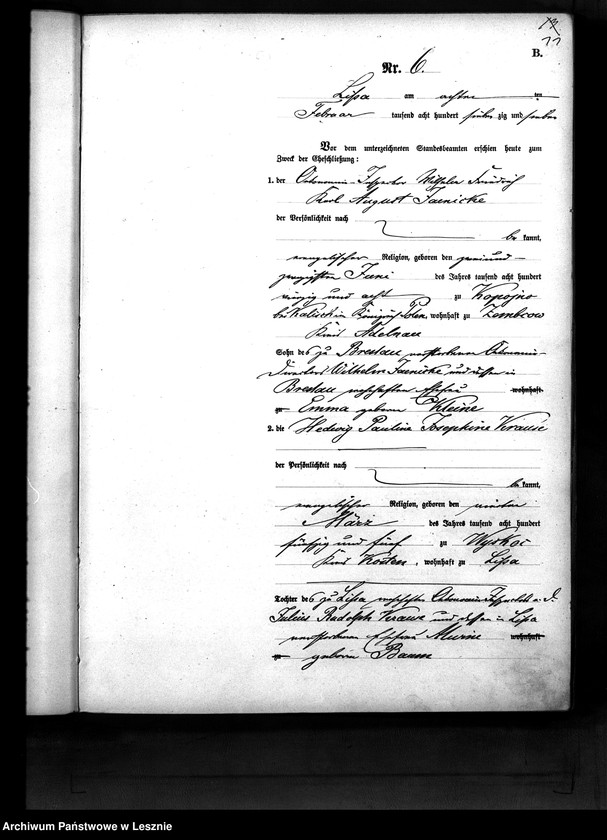 11
B.
Nr. 6.
Lissa am achten ten
Februar tausend acht hundert sieben zig und sieben
Vor dem unterzeichneten Standesbeamten erschien heute zum
Zweck der Eheschließung:
1. der Oekonomie-Inspector Wilhelm Friedrich
Karl August Jaenicke
der Persönlichkeit nach
be kannt,
evangelischer Religion, geboren den zwei und
zwanzigsten Juni des Jahres tausend acht hundert
vierzig und acht zu Kopojno
bei Kalisch im Königreich Polen, wohnhaft zu
Kreis Adelnau
Sohn des zu Breslau verstorbenen Oekonomie-
Wilhelm Jaenicke und dessen in
Breslau wohnhaften Ehefrau wohnhaft
zu Emma geboren Kleine
2. die Hedwig Pauline Josephine Krause
der Persönlichkeit nach
be kannt,
evangelischer Religion, geboren den vierten
März des Jahres tausend acht hundert
fünfzig und fünf zu Wyskoc
Kreis Kosten, wohnhaft zu Lissa
Tochter des zu Lissa wohnhaften Oekonomie-Inspectors a. D.
Julius Rudolph Krause und dessen in Lissa
verstorbenen Ehefrau wohnhaft
zu geboren
Archiwum Państwowe w Lesznie